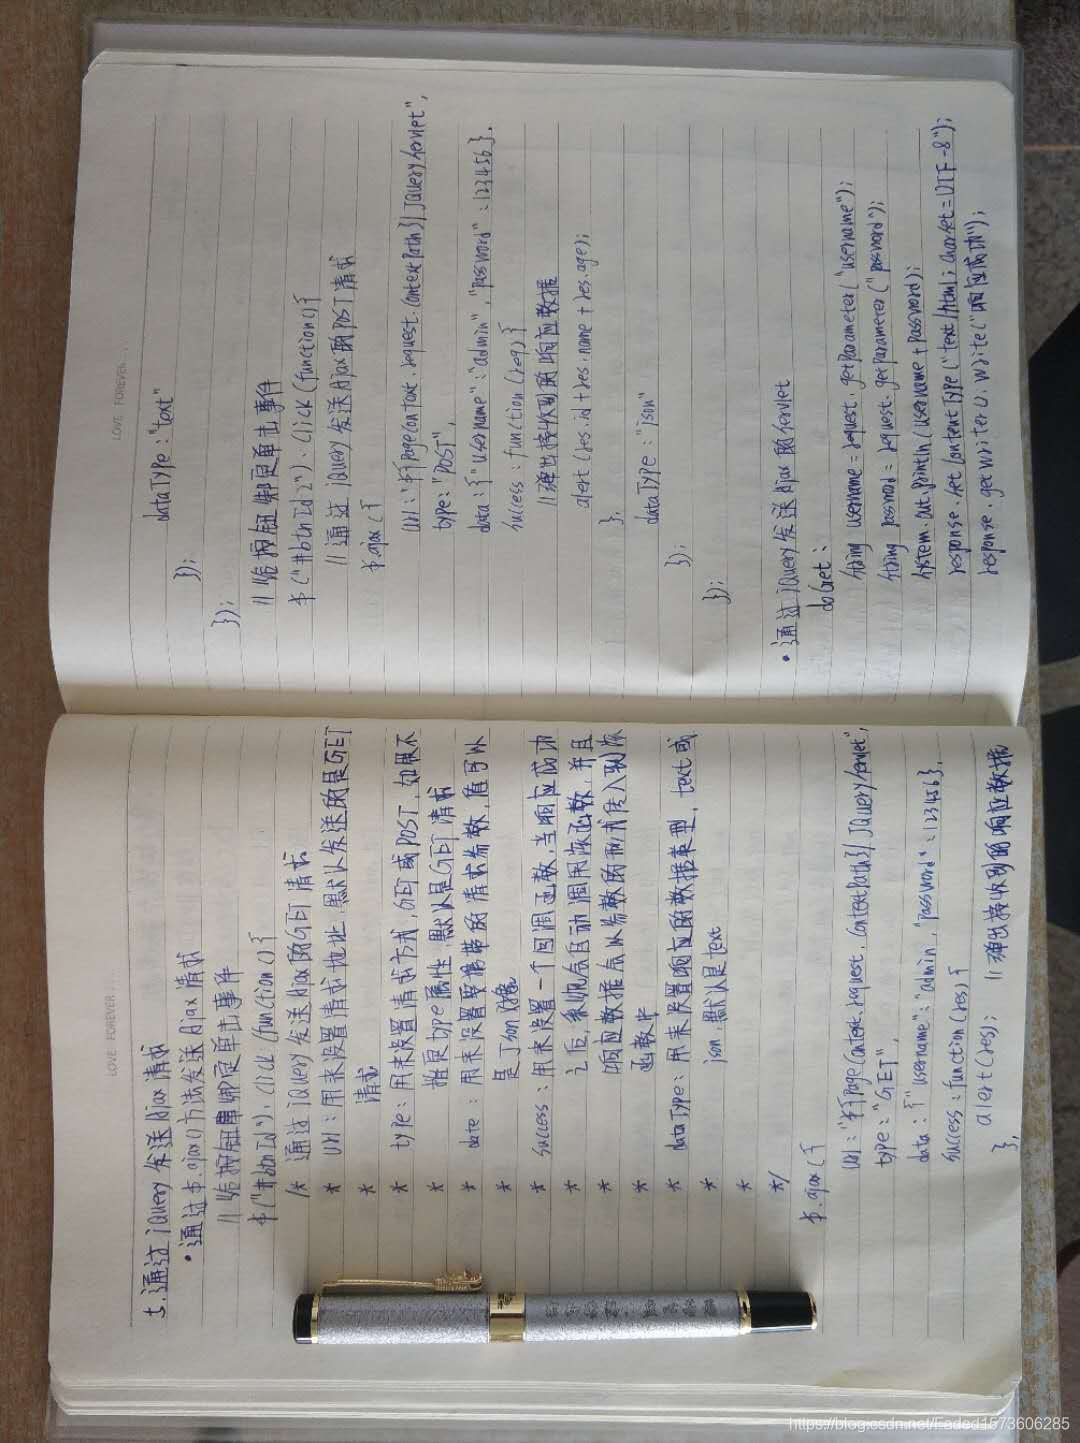 LOVE FOREVER...
5.通过jQuery发送Ajax请求
•通过$.ajax()方法发送Ajax请求
//给按钮绑定单击事件
$("#btnId").click(function(){
/* 通过jQuery发送Ajax的GET请求
* url:用来设置请求地址,默认发送的是GET
* 请求
* type:用来设置请求方式,GET或POST,如果不
* 指定type属性,默认是GET请求
* date:用来设置要携带的请求参数,值可以
* 是Json对象
* success:用来设置一个回调函数,当响应成功
* 之后,系统会自动调用该函数,并且
* 响应数据会以参数的形式传入到该
* 函数中
* dataType:用来设置响应的数据类型,text或
* json,默认是text
*
*/
$.ajax({
url:"${pageContext.request.contextPath}/JQueryServlet",
type:"GET",
data:{"username":"admin","password":123456},
success:function(res){
alert(res); //弹出接收到的响应数据
},
LOVE FOREVER...
dataType:"text"
});
});
//给按钮绑定单击事件
$("#btnId2").click(function(){
//通过jQuery发送Ajax的POST请求
$.ajax({
url:"${pageContext.request.contextPath}/JQueryServlet",
type:"POST",
data:{"username":"admin","password":123456},
success:function(req){
//弹出接收到的响应数据
alert(res.id+res.name+res.age);
},
dataType:"json"
});
});
•通过jQuery发送Ajax的Servlet
doGet:
String username=request.getParameter("username");
String password=request.getParameter("password");
System.out.println(username+password);
response.setContentType("text/html;charset=UTF-8");
response.getWriter().write("响应成功");
https://blog.csdn.net/Faded1573606285